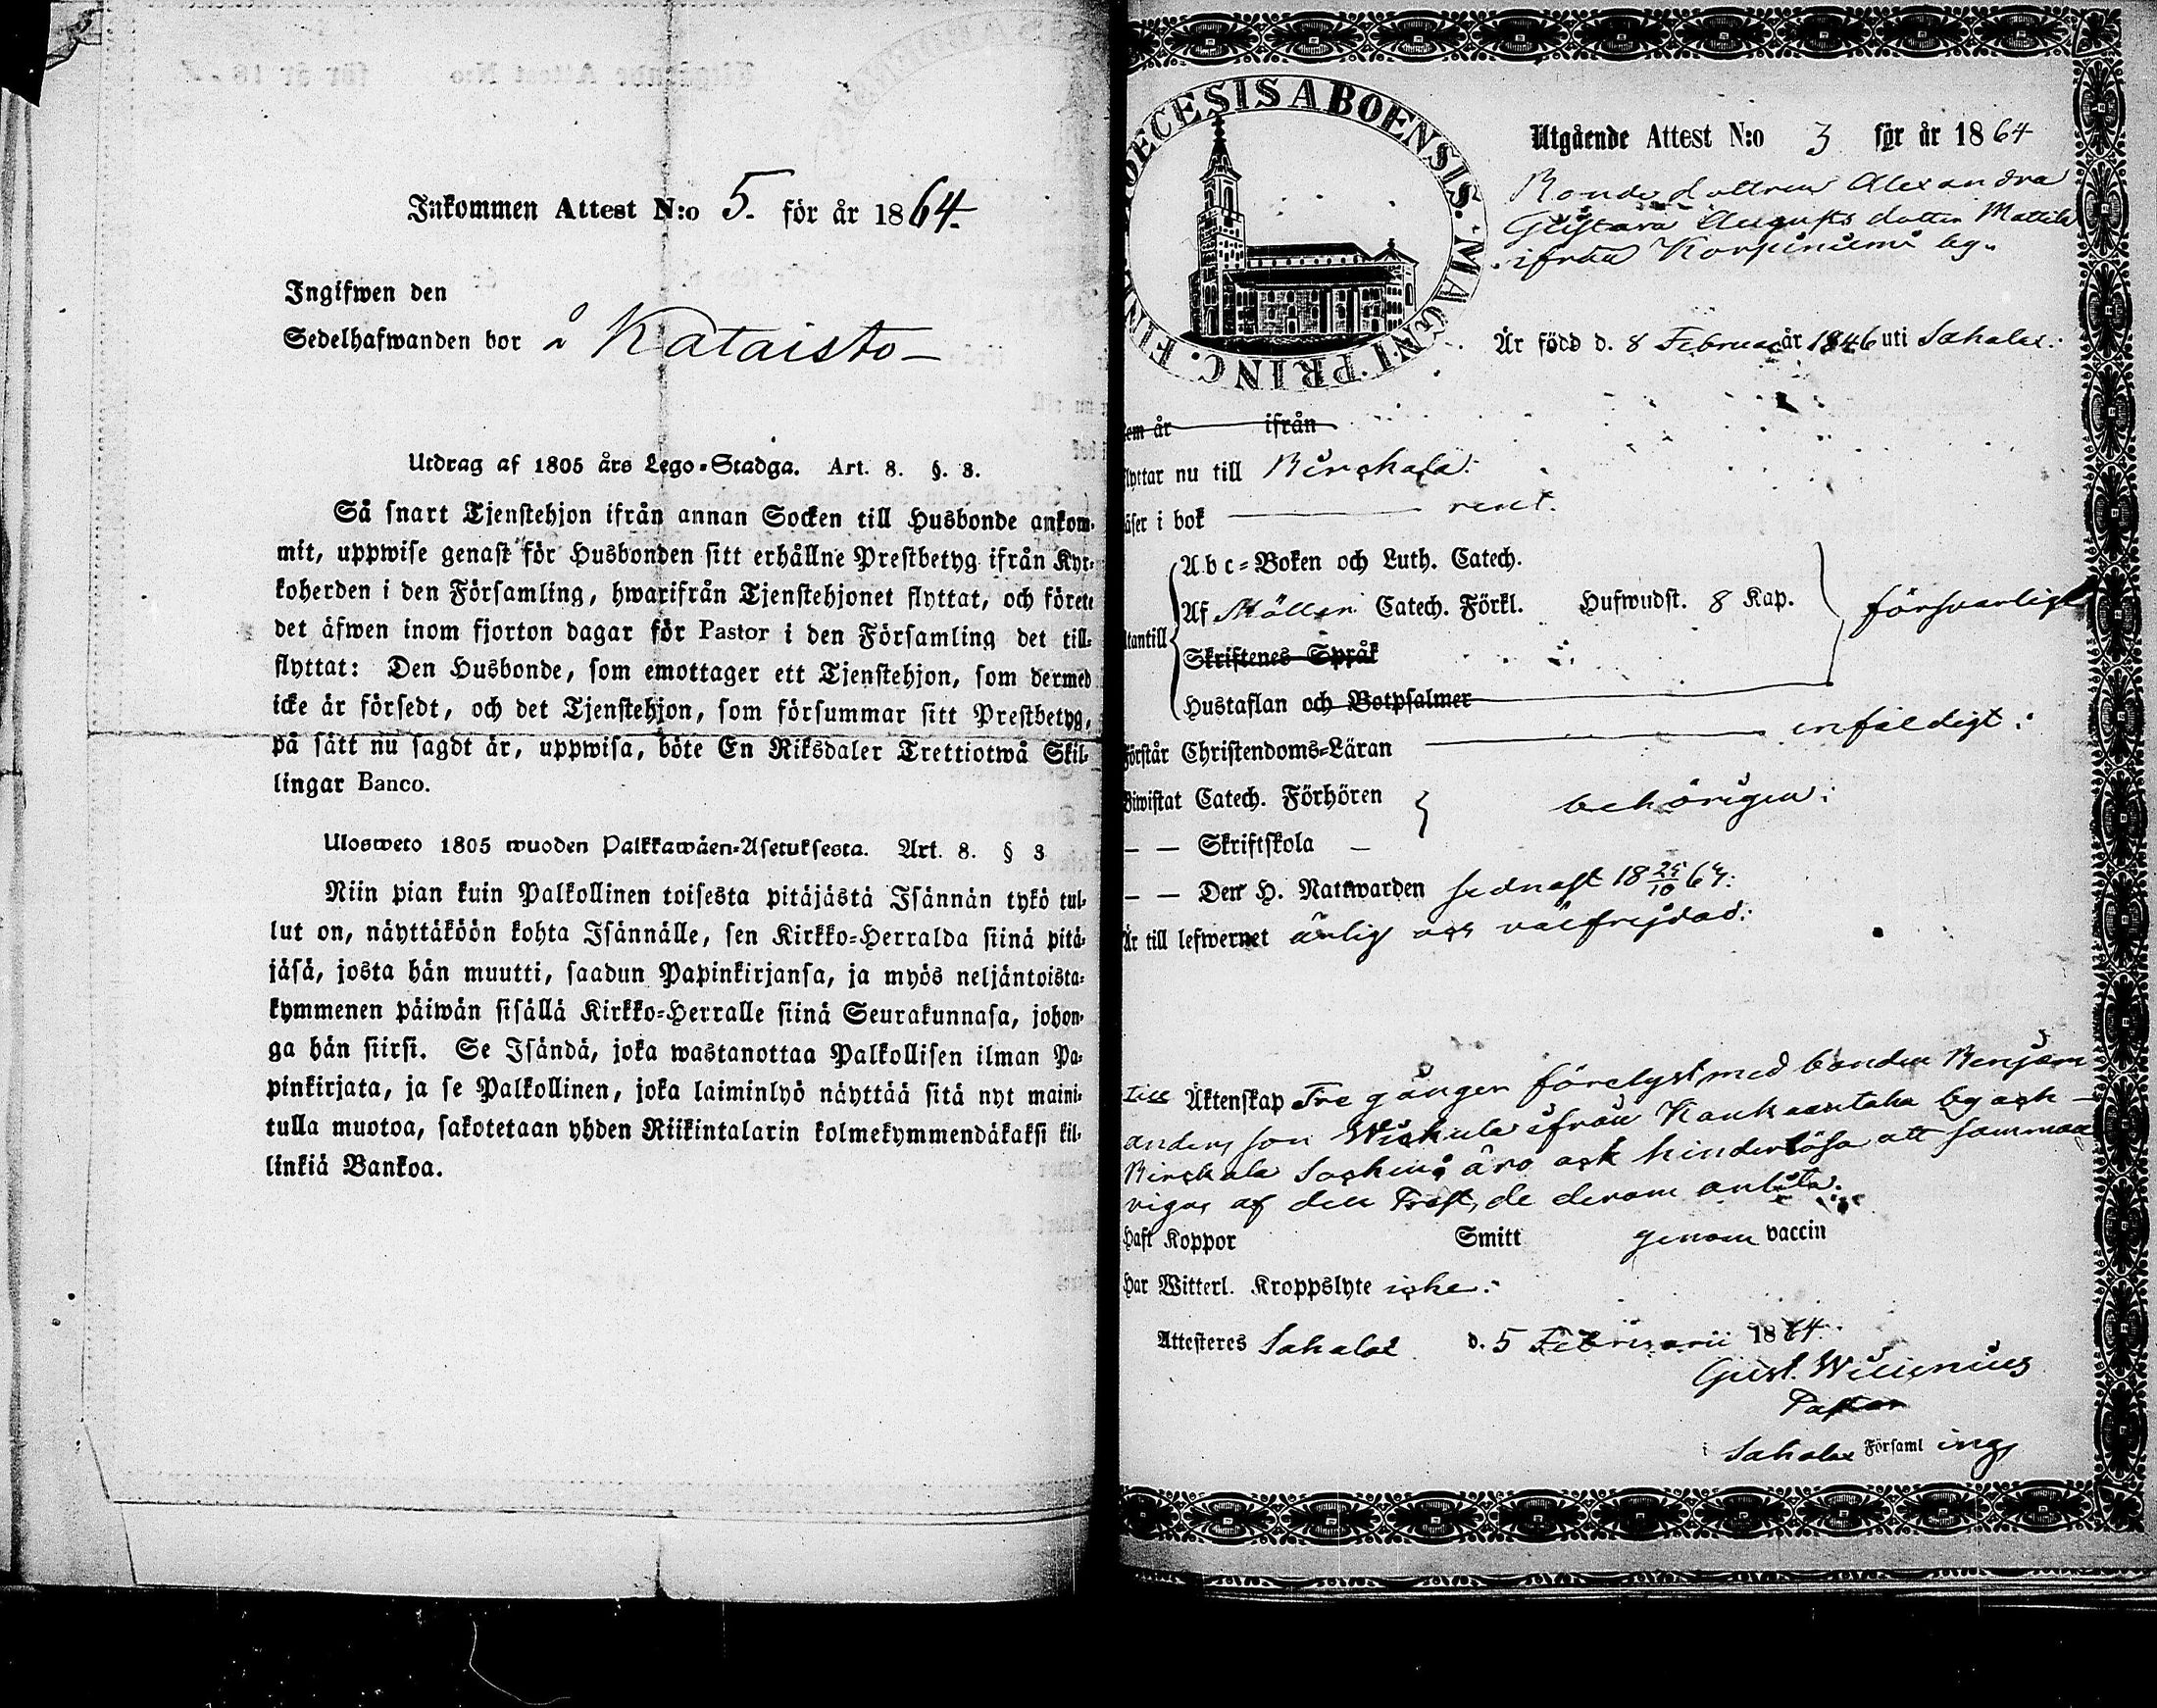 Inkommen Attest N:o 5. för år 1864.
Ingifwen den
Sedelhafwanden bor å Kataisto
Utdrag af 1805 års Lego-Stadga. Art. 8. §. 8.
Så snart Tjenstehjon ifrån annan Socken till Husbonde ankom-
mit, uppwise genast för Husbonden sitt erhållne Prestbetyg ifrån Kyr-
koherden i den Församling, hwarifrån Tjenstehjonet flyttat, och förete
det äfwen inom fjorton dagar för Pastor i den Församling det till-
flyttat: Den Husbonde, som emottager ett Tjenstehjon, som dermed
icke är försedt, och det Tjenstehjon, som försummar sitt Prestbetyg,
på sätt nu sagdt är, uppwisa, böte En Riksdaler Trettiotwå Skil-
lingar Banco.
Ulosweto 1805 wuoden Palkkawäen-Asetuksesta. Art. 8. § 8
Niin pian kuin Palkollinen toisesta pitäjästä Isännän tykö tul-
lut on, näyttäköön kohta Isännälle, sen Kirkko-Herralda siinä pitä-
jäsä, josta hän muutti, saadun Papinkirjansa, ja myös neljäntoista-
kymmenen päiwän sisällä Kirkko-Herralle siinä Seurakunnasa, johon-
ga hän siirsi. Se Isändä, joka wastanottaa Palkollisen ilman Pa-
pinkirjata, ja se Palkollinen, joka laiminlyö näyttää sitä nyt maini-
tulla muotoa, sakotetaan yhden Riikintalarin kolmekymmendäkaksi kil-
linkiä Bankoa.
DIOECESIS ABOENSIS. MAGNI PRINC. FIN
Utgående Attest N:o 3 för år 1864
Bondedottren Alexandra
Gustava Augustsdotter Mattila
ifrån Korpiniemi by.
Är född d. 8 Februari år 1846 uti Sahalax.
em år ifrån
flyttar nu till Birckala.
äser i bok rent.
Abc-Boken och Luth. Catech.
Af Möllers Catech. Förkl. Hufwudst. 8 Kap. försvarligt
tantill
Skriftenes Språk
Hustaflan och Botpsalmer
förstår Christendoms-Läran enfaldigt.
Biwistat Catech. Förhören behörigen:
— — Skriftskola —
— — Den H. Nattwarden sednast 18 25/10 64:
Är till lefwernet ärlig och välfrejdad:
till Äktenskap Tre gånger förelyst med bonden Benjam
Andersson Wickula ifrån Kankaantaka by och
Birckala Sochen; äro ock hinderlösa att samman
vigas af den Prest, de derom anlita.
Haft Koppor Smitt genom vaccin
Har Witterl. Kroppslyte icke.
Attesteres Sahalax d. 5 Februarii 1864.
Gust. Wilenius
Pastor
i Sahalax Församlings